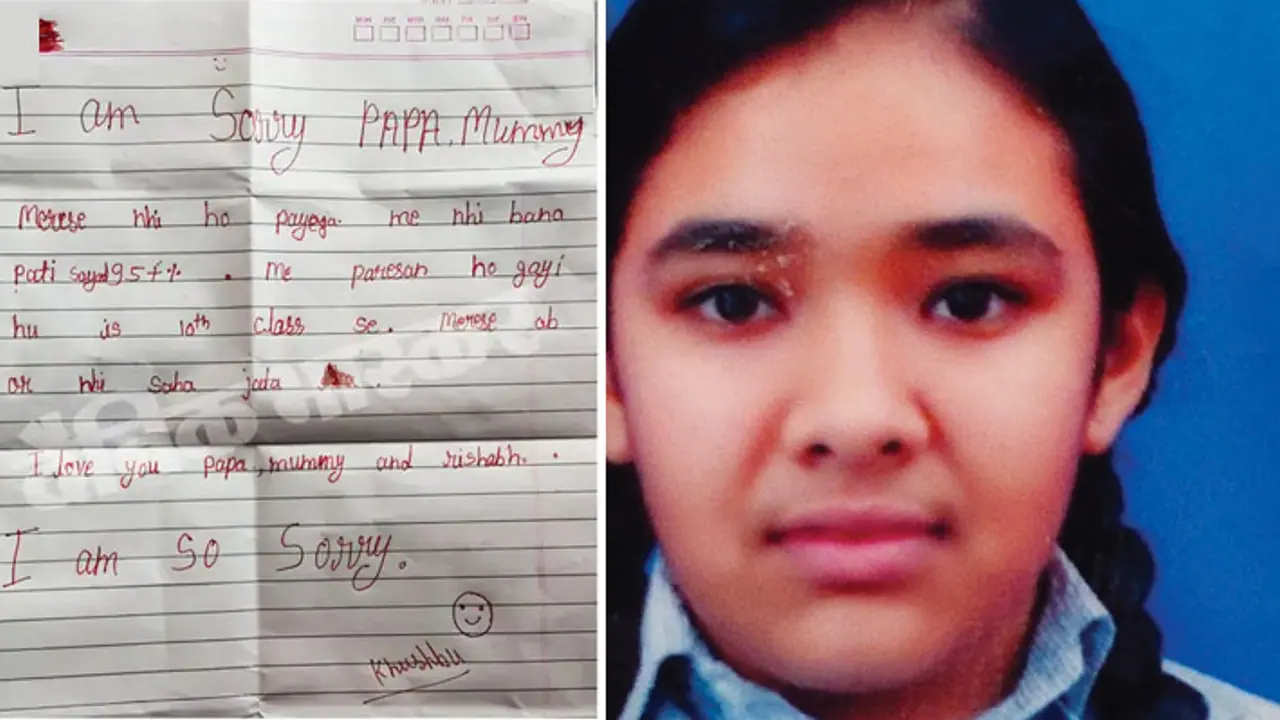 I am Sorry PAPA, Mummy
Merese nhi ho payega. me nhi bana
pati sayad 95+% . me paresan ho gayi
hu is 10th class se. Merese ab
or nhi saha jata .
दैनिक भास्कर
I love you papa, mummy and rishabh. .
I am so Sorry.
Khushbu